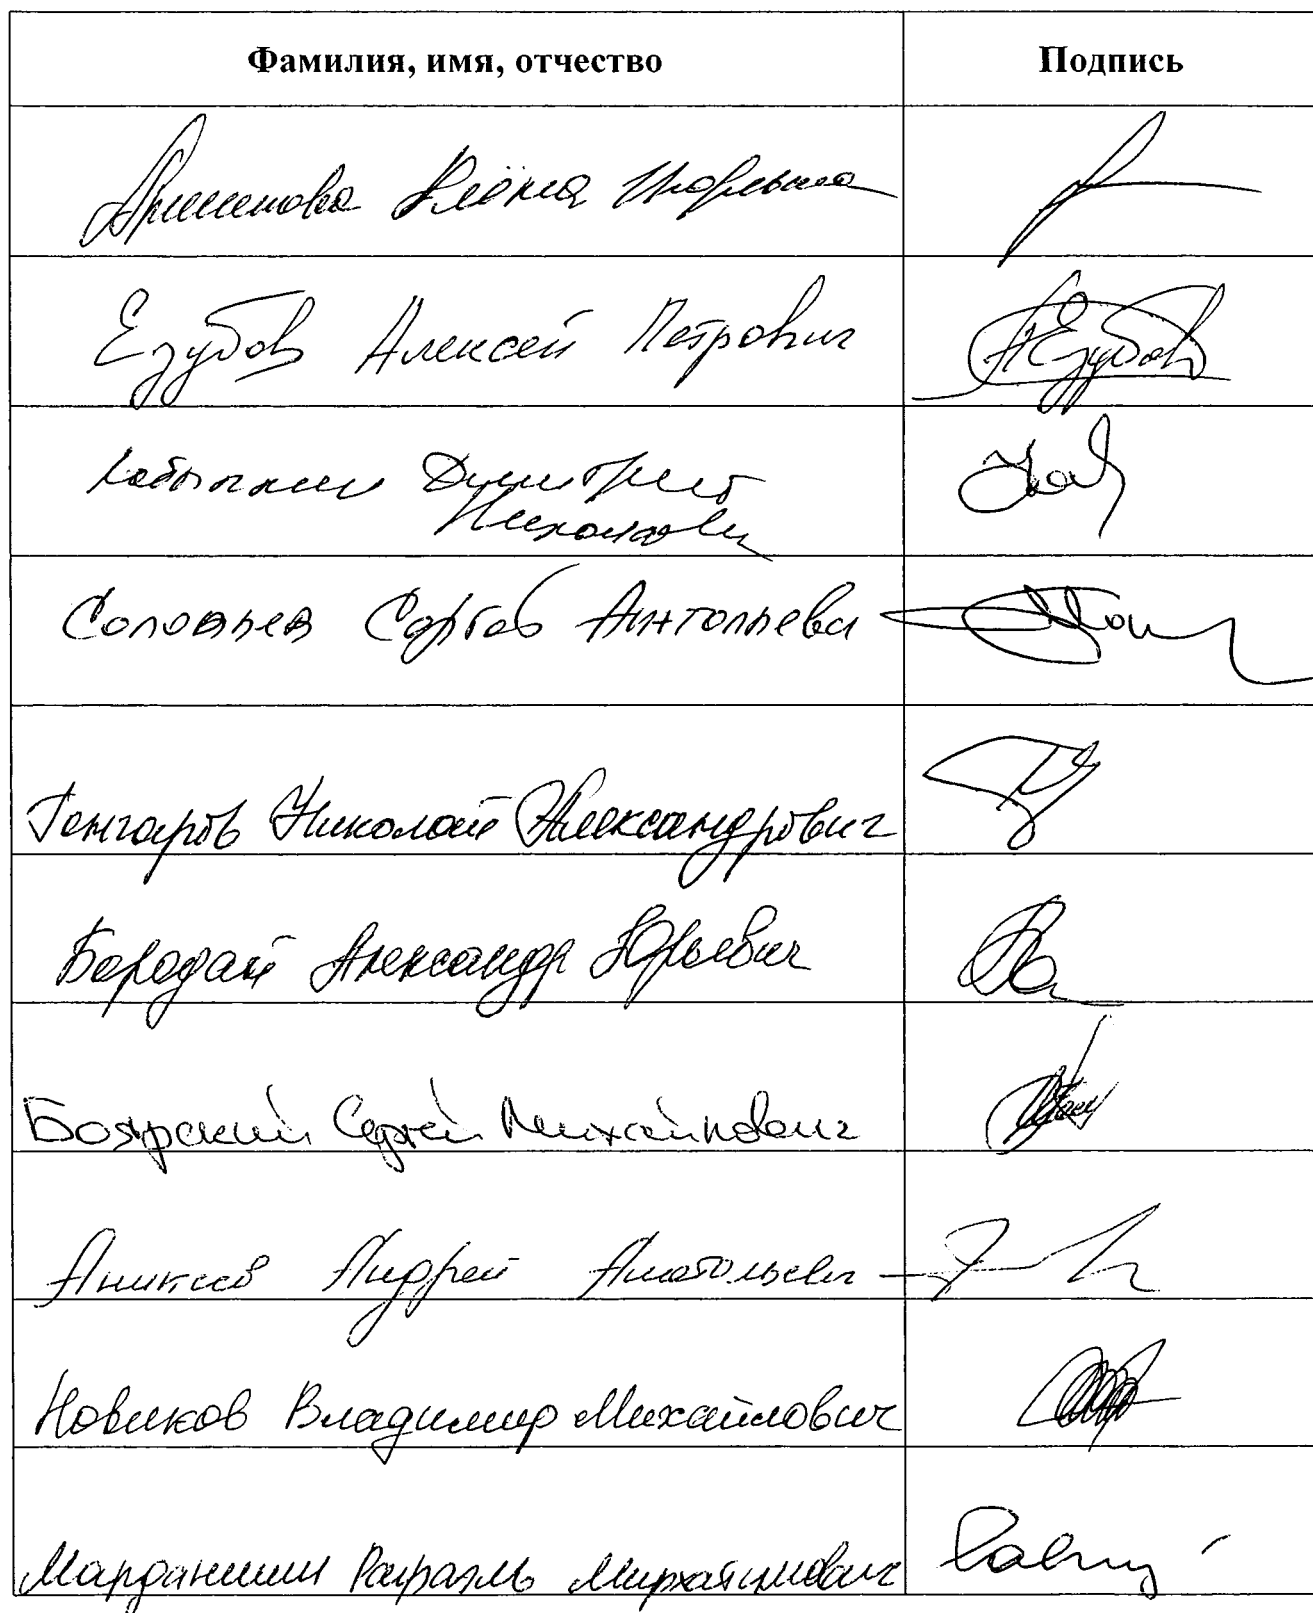 Фамилия, имя, отчество Подпись
Аршинова Алёна Игоревна
Езубов Алексей Петрович АЕзубов
Кобылкин Дмитрий
Николаеви
Соловьев Сергей Анатольеви
Гончаров Николай Александрович
Бородай Александр Юрьевич
Боярский Сергей Михайлович
Аникеев Андрей Анатольевич
Новиков Владимир Михайлович
Марданшин Рафаэль Мирхатимович